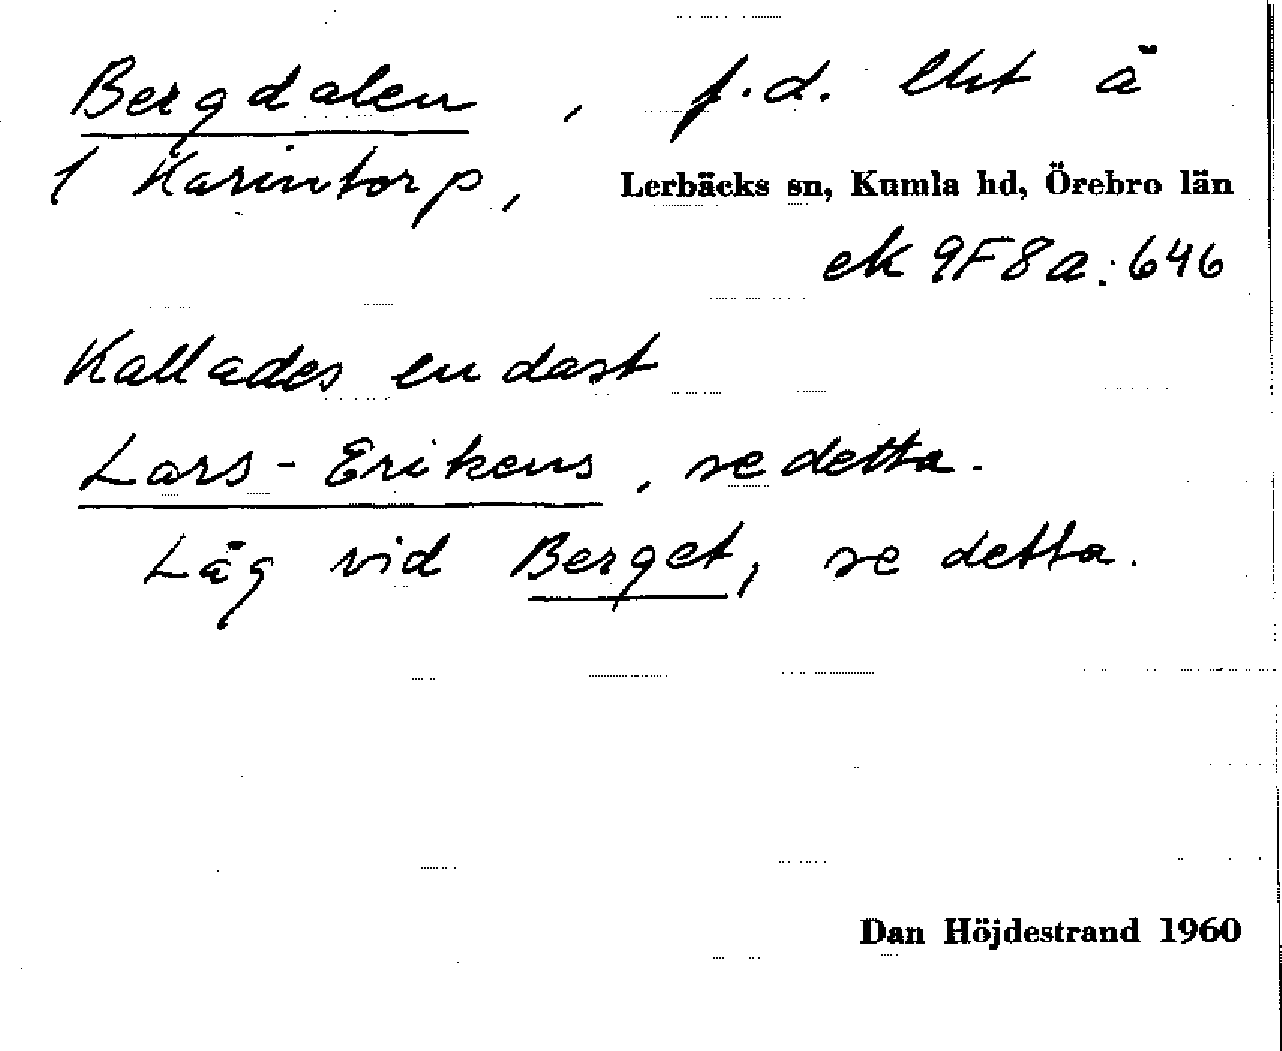 Bergdalen, f.d. lht å
1 Karintorp, Lerbäcks sn, Kumla hd, Örebro län
ek 9F8a:646
Kallades endast
Lars-Erikens, se detta.
Låg vid Berget, se detta.
Dan Höjdestrand 1960